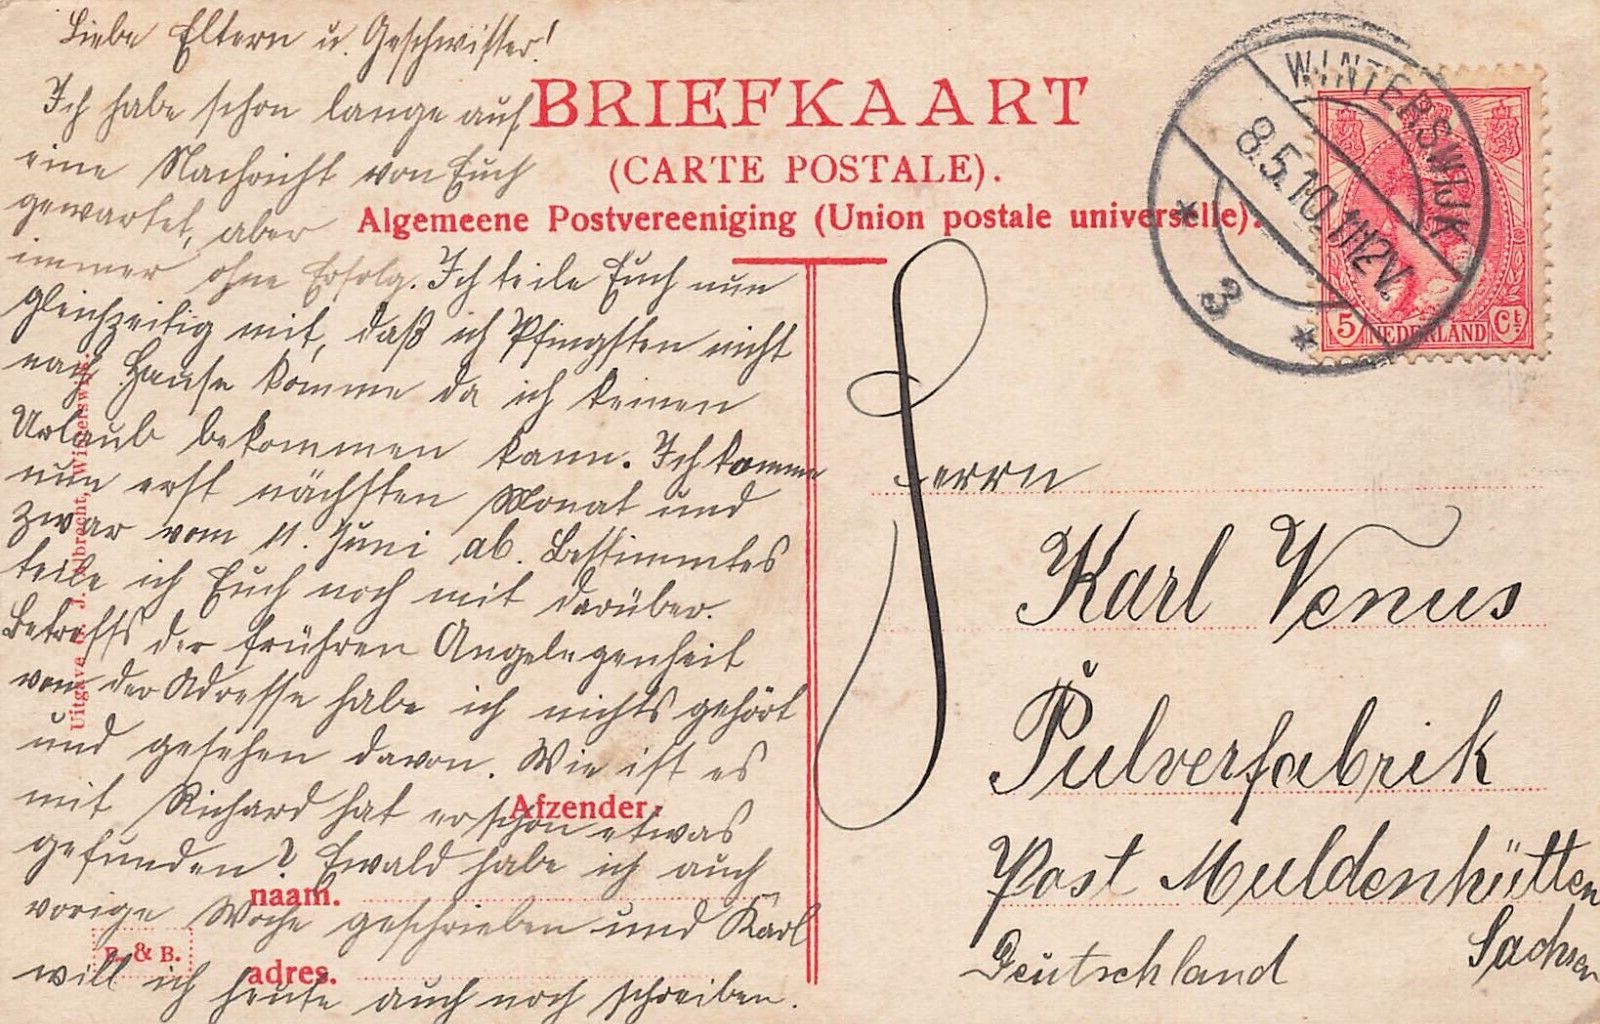 Liebe Eltern u. Geschwister!
Ich habe schon lange auf
eine Nachricht von Euch
gewartet, aber
immer ohne Erfolg. Ich teile Euch nun
gleichzeitig mit, daß ich Pfingsten nicht
nach Hause komme da ich keinen
Urlaub bekommen kann. Ich komme
nun erst nächsten Monat und
zwar vom 11. Juni ab. Bestimmtes
teile ich Euch noch mit darüber.
Betreffs der frühren Angelegenheit
von der Adresse habe ich nichts gehört
und gesehen davon. Wie ist es
mit Richard hat er schon etwas
gefunden? Ewald habe ich auch
vorige Woche geschrieben und Karl
will ich heute auch noch schreiben.
BRIEFKAART
(CARTE POSTALE).
Algemeene Postvereeniging (Union postale universelle).
WINTERSWIJK
8.5.10.11112V.
3
5 NEDERLAND Ct
Herrn
Karl Venus
Pulverfabrik
Post Muldenhütten
Sachsen
Deutschland
Afzender:
naam.
adres.
B. & B.
Uitgave G. J. Albrecht, Winterswijk.